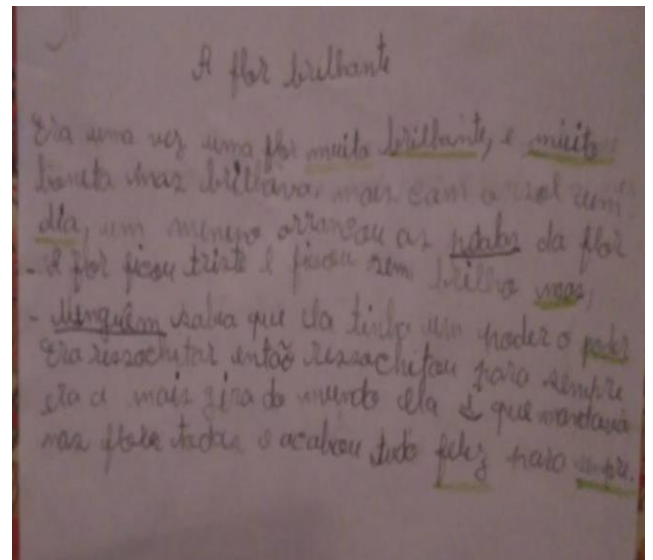 A flor brilhante
Era uma vez uma flor muito brilhante, e muito
bonita mas brilhava, mais com o sol um
dia, um menino arrancou as petalas da flor
- A flor ficou triste e ficou sem brilho mas,
- Ninguêm sabia que ela tinha um poder o poder
Era ressochitar então ressachitou para sempre
era a mais gira do mundo ela é que mandava
nas flores todas e acabou tudo feliz para sempre.